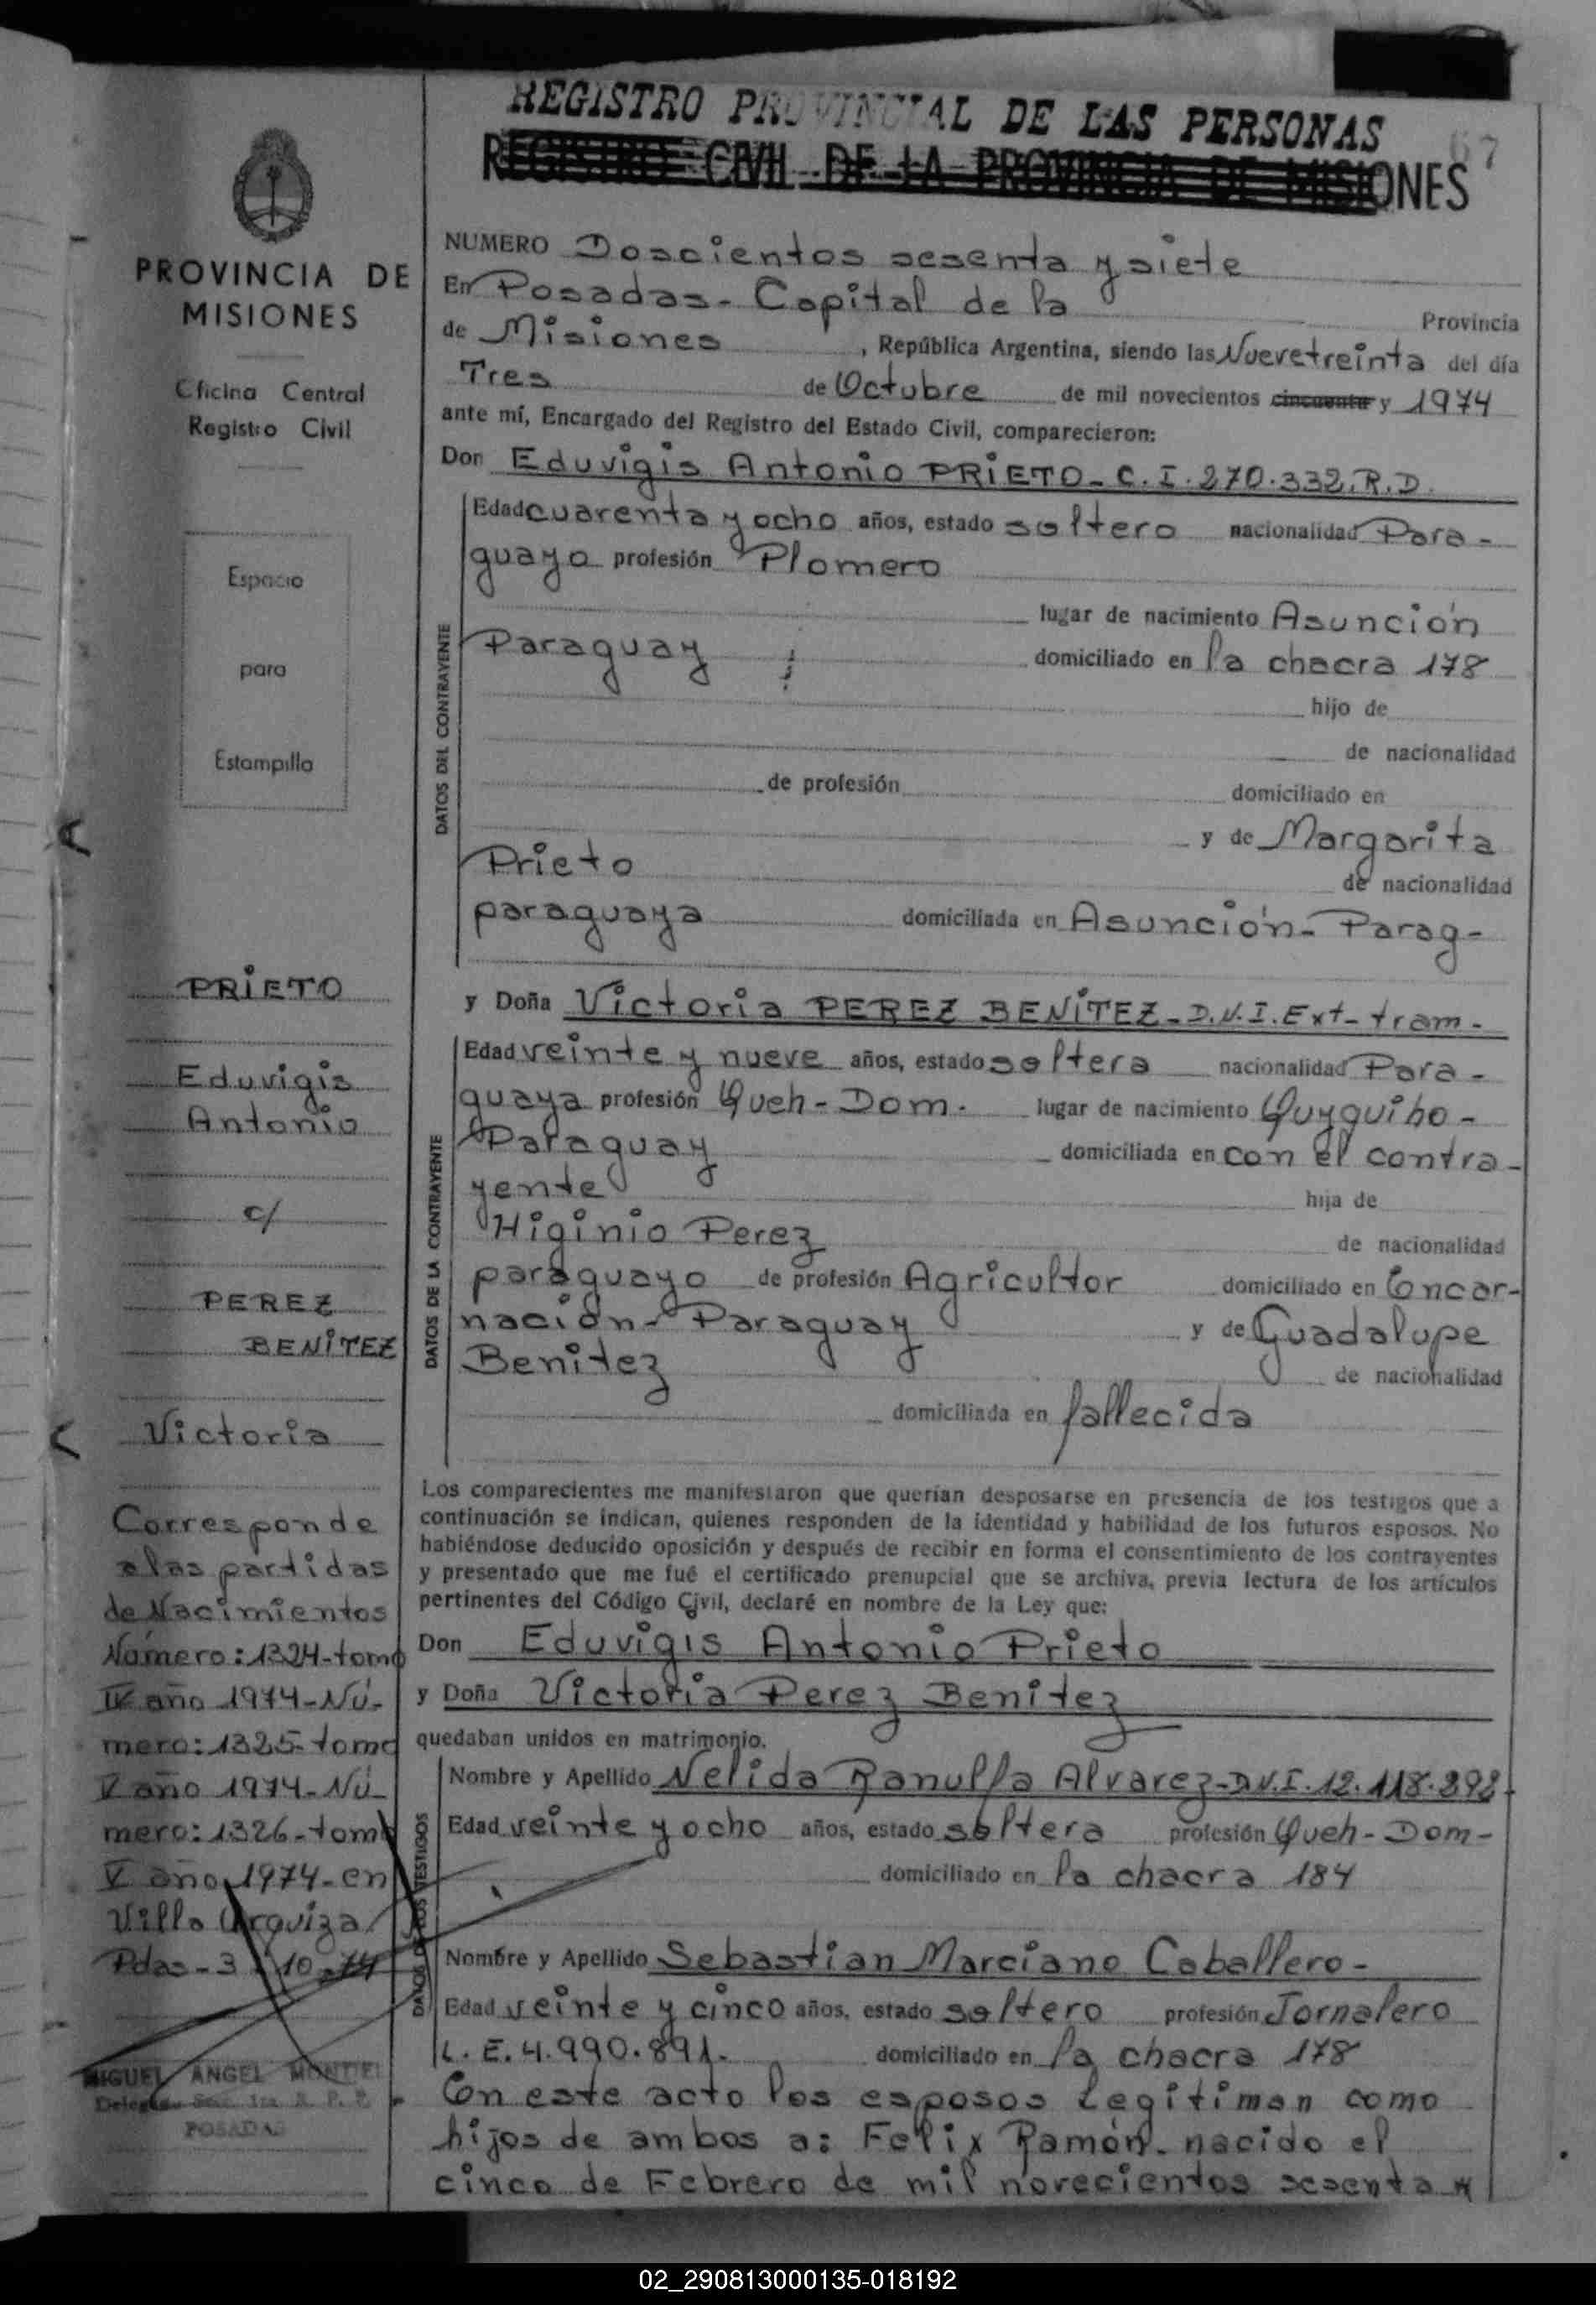 REGISTRO PROVINCIAL DE LAS PERSONAS
REGISTRO CIVIL DE LA PROVINCIA DE MISIONES
67
PROVINCIA DE
MISIONES
Oficina Central
Registro Civil
Espacio
para
Estampilla
PRiETO
Eduvigis
Antonio
c/
PEREZ
BENiTEZ
Victoria
Corresponde
a las partidas
de Nacimientos
Número: 1324-tomo
IV año 1974-Nú-
mero: 1325-tomo
V año 1974-Nú-
mero: 1326-tomo
V año 1974-en
Villa Urquiza
Pdas-3-10-74
MIGUEL ANGEL MONTIEL
POSADAS
NUMERO Doscientos sesenta y siete
En Posadas-Capital de la Provincia
de Misiones, República Argentina, siendo las Nuevetreinta del día
Tres de Octubre de mil novecientos cincuenta y 1974
ante mí, Encargado del Registro del Estado Civil, comparecieron:
Don Eduvigis Antonio PRiETO-C.I.270.332.R.D.
DATOS DEL CONTRAYENTE
Edad cuarenta y ocho años, estado soltero nacionalidad Para-
guayo profesión Plomero
lugar de nacimiento Asunción
Paraguay domiciliado en la chacra 178
hijo de
de nacionalidad
de profesión domiciliado en
y de Margarita
Prieto de nacionalidad
paraguaya domiciliada en Asunción-Parag-
y Doña Victoria PEREZ BENiTEZ-D.N.I.Ext-tram-
DATOS DE LA CONTRAYENTE
Edad veinte y nueve años, estado soltera nacionalidad Para-
guaya profesión Queh-Dom. lugar de nacimiento Quyquiho-
Paraguay domiciliada en con el contra-
yente hija de
Higinio Perez de nacionalidad
paraguayo de profesión Agricultor domiciliado en Encar-
nación-Paraguay y de Guadalupe
Benitez de nacionalidad
domiciliada en fallecida
Los comparecientes me manifestaron que querían desposarse en presencia de los testigos que a
continuación se indican, quienes responden de la identidad y habilidad de los futuros esposos. No
habiéndose deducido oposición y después de recibir en forma el consentimiento de los contrayentes
y presentado que me fué el certificado prenupcial que se archiva, previa lectura de los artículos
pertinentes del Código Civil, declaré en nombre de la Ley que:
Don Eduvigis Antonio Prieto
y Doña Victoria Perez Benitez
quedaban unidos en matrimonio.
DATOS DE LOS TESTIGOS
Nombre y Apellido Nelida Ranulfa Alvarez-D.N.I.12.118.292.
Edad veinte y ocho años, estado soltera profesión Queh-Dom-
domiciliado en la chacra 184
Nombre y Apellido Sebastian Marciano Caballero-
Edad veinte y cinco años, estado soltero profesión Jornalero
L.E.4.990.891. domiciliado en la chacra 178
En este acto los esposos legitiman como
hijos de ambos a: Felix Ramón-nacido el
cinco de Febrero de mil novecientos sesenta y
02_290813000135-018192